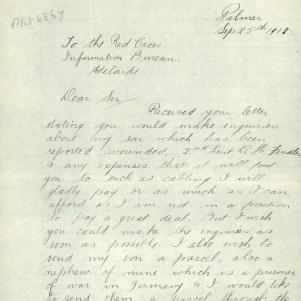 Pkt 6867
Palmer
Sep 25th 1918
To the Red Cross
Information Bureau.
Adelaide
Dear Sir
Received your letter
stating you would make enquiries
about my son which has been
reported wounded, 2nd Lieut
& any expenses that it will put
you to such as cabling I will
gladly pay or as much as I can
afford as I am not in a position
to pay a great deal. But I wish
you could make the enquiries as
soon as possible. I also wish to
send my son a parcel, also a
nephew of mine which is a prisoner
of war in Germany & I would like
to send them a parcel through the